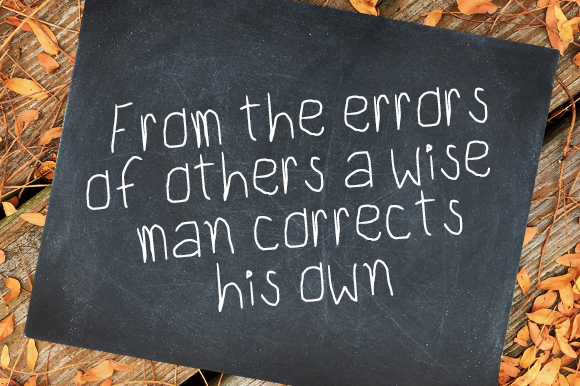 From the errors
of others a wise
man corrects
his own